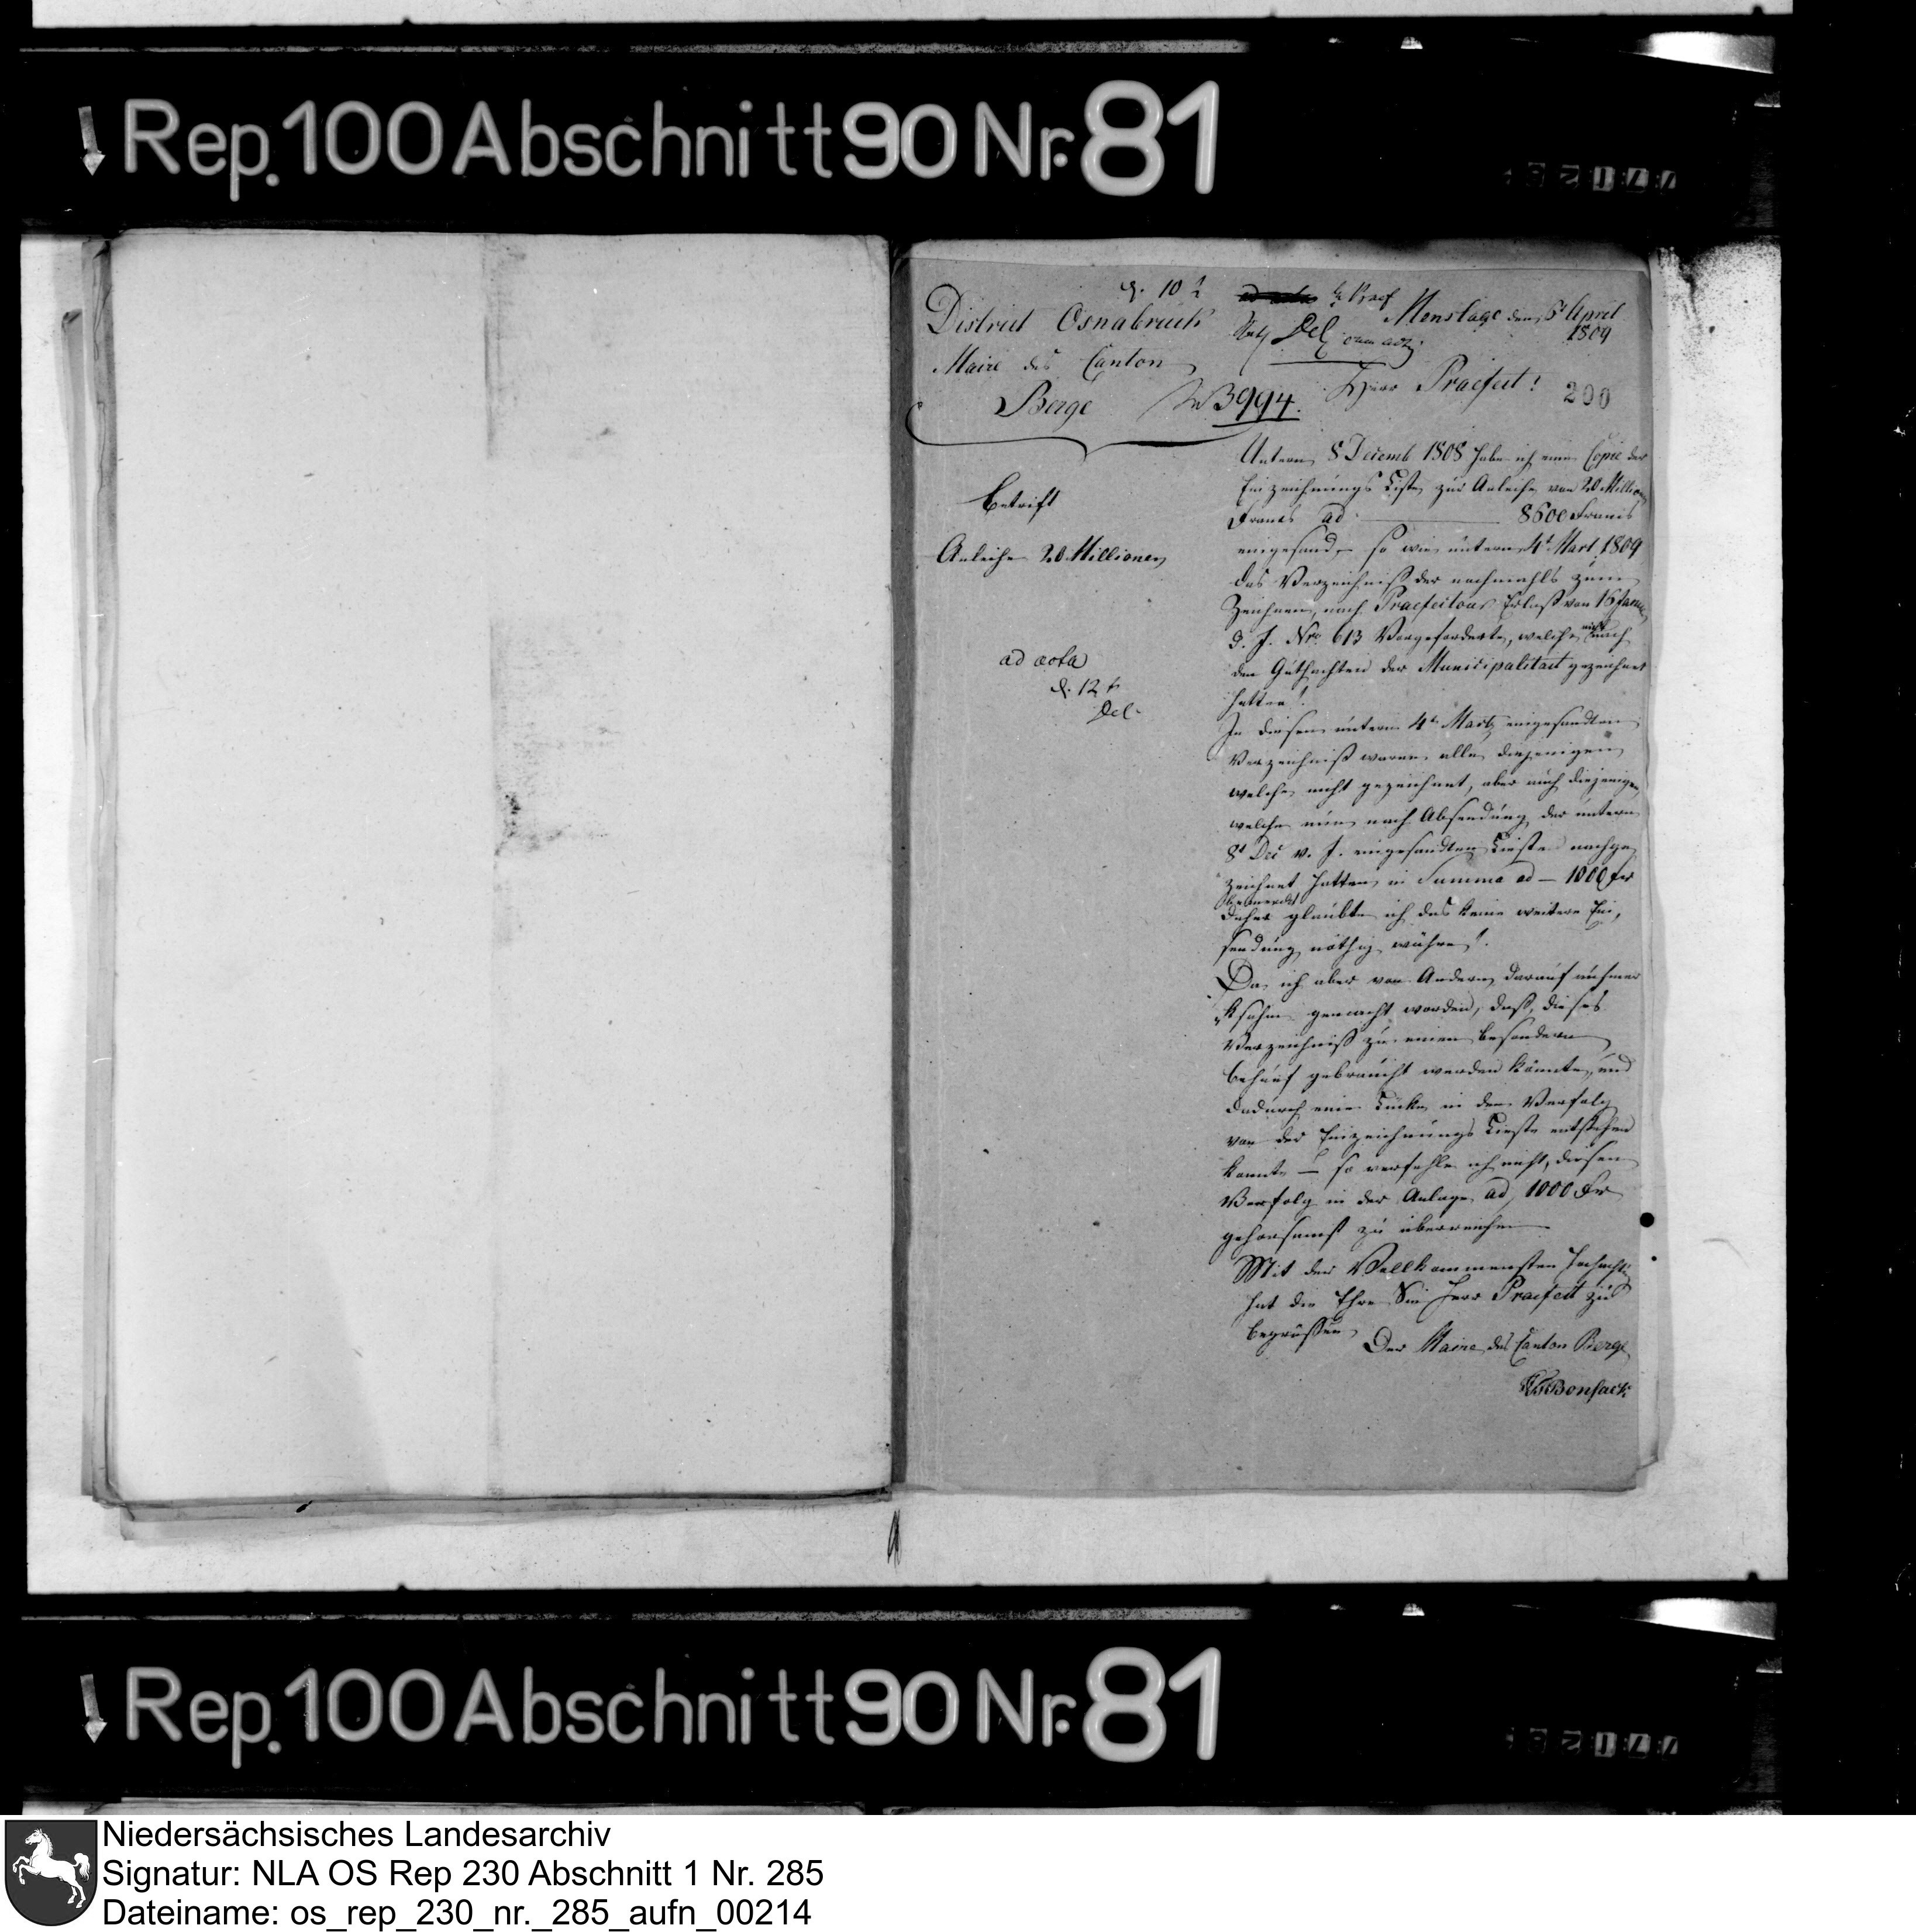 Rep. 100 Abschnitt 90 Nr. 81
District Osnabruck
Maire des Canton
Berge
№ 3994.
Menslage den April
1809
Herr Praefect!
200
Betrift
Anleihe 20 Millionen
ad acta
d. 12
Del
Unterm 8 Decemb 1808 habe ich eine Copie der
Einzeichnungs Liste zur Anleihe von 20 Million
Francs ad — 8600 Francs
eingesand, so wie unterm 4t Mart 1809
das Verzeichniß der nachmahls zum
Zeichnen, nach Praefectour Erlaß von 16 Januar
d. J. Nro 613 Vorgeforderte, welche nicht nach
den Guthachten der Municipalitaet gezeichnet
hatten!
In diesem unterm 4t Martz eingesandten
Verzeichniß waren alle diejenigen
welche nicht gezeichnet, aber auch diejenigen
welche nun nach Absendung der unterm
8t Dec v. J. eingesandten Lieste nachge
zeichnet hatten in Summa ad — 1000 fr
bemerckt
daher glaubte ich das keine weitere Ein,
sendung nöthig währe!
Da ich aber von Andern darauf aufmer
ksahm gemacht worden, daß, dieses
Verzeichniß zu einen besondern
Behuf gebraucht werden könnte, und
dadurch eine Lücke in dem Verfolg
von der Einzeichnungs Lieste entstehen
könnte — so verfehle ich nicht, diesen
Verfolg in der Anlage ad 1000 Fr
gehorsamst zu überreichen
Mit der Vollkommensten Hochacht
hat die Ehre Sie Herr Praefect zu
begrüßen
Der Maire des Canton Berge
Bonsack
Rep. 100 Abschnitt 90 Nr. 81
Niedersächsisches Landesarchiv
Signatur: NLA OS Rep 230 Abschnitt 1 Nr. 285
Dateiname: os_rep_230_nr._285_aufn_00214